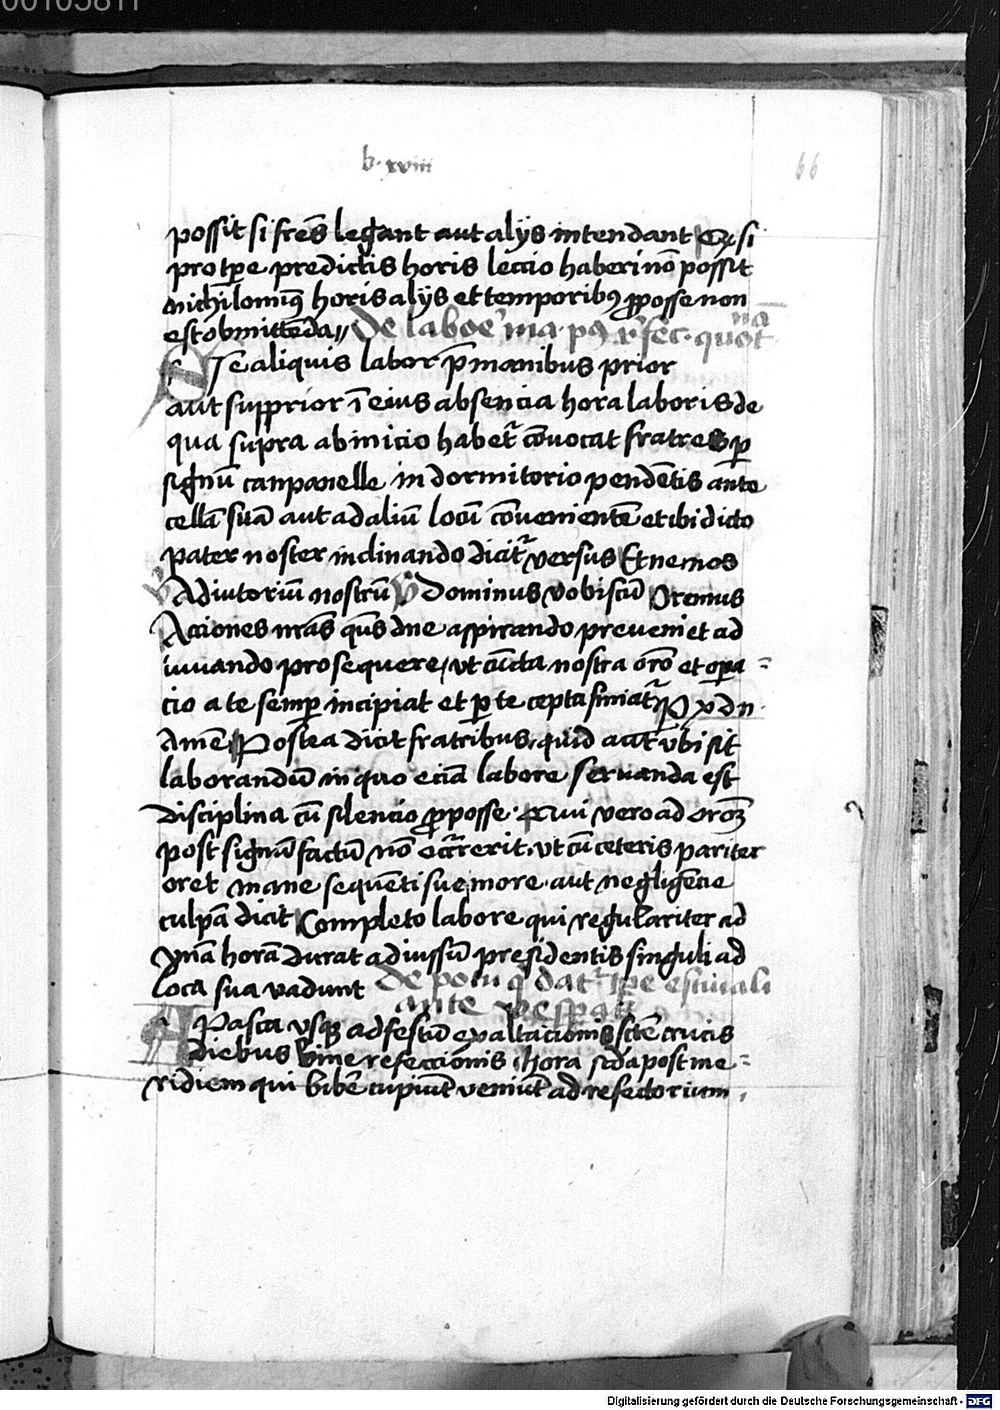 00105811
b. xviii
66
possit si frēs legant aut alijs intendant Et si
pro tp̄e predictis horis leccio haberi nō possit
nichilominꝰ horis alijs et temporibꝰ ꝓ posse non
est obmittēda De
aliquis labor p̄ manibus prior
aut supprior ī eius absencia hora laboris de
qua supra ab inicio habet᷑ cōuocat fratres ꝑ
signū canpanelle in dormitorio pendētis ante
cellā suā aut ad aliū locū cōuenientē et ibi dicto
pater noster inclinando dicit᷑ versus Et ne nos
℣ Adiutoriū nostrū ℣ Dominus vobiscū Oremus
Acciones nr̄as qūs dn̄e aspirando preueni et ad
iuuando prosequere, vt cūcta nostra orō et oꝑa =
cio a te semꝑ incipiat et ꝑ te cepta finiat᷑ P x dn
Amē Postea dicit fratribus, quid aut vbi sit
laborandū in quo eciā labore seruanda est
disciplina cū silencio ꝓ posse. Qui vero ad orōꝫ
post signū factū nō occ̄rrerit, vt cū ceteris pariter
oret mane sequēti suo more aut negligēcie
culpā dicit Completo labore qui regulariter ad
vnā horā durat ad iussū presidentis singuli ad
loca sua vadunt De potu q̇ dat᷑ tp̄e estiuali
ante vesperas
A Pasca vsqꝫ ad festū exaltacionis scē crucis
diebus bine refeccionis hora sc̄da post me =
ridiem qui bibē cupiūt veniūt ad refectorium
Digitalisierung gefördert durch die Deutsche Forschungsgemeinschaft - DFG